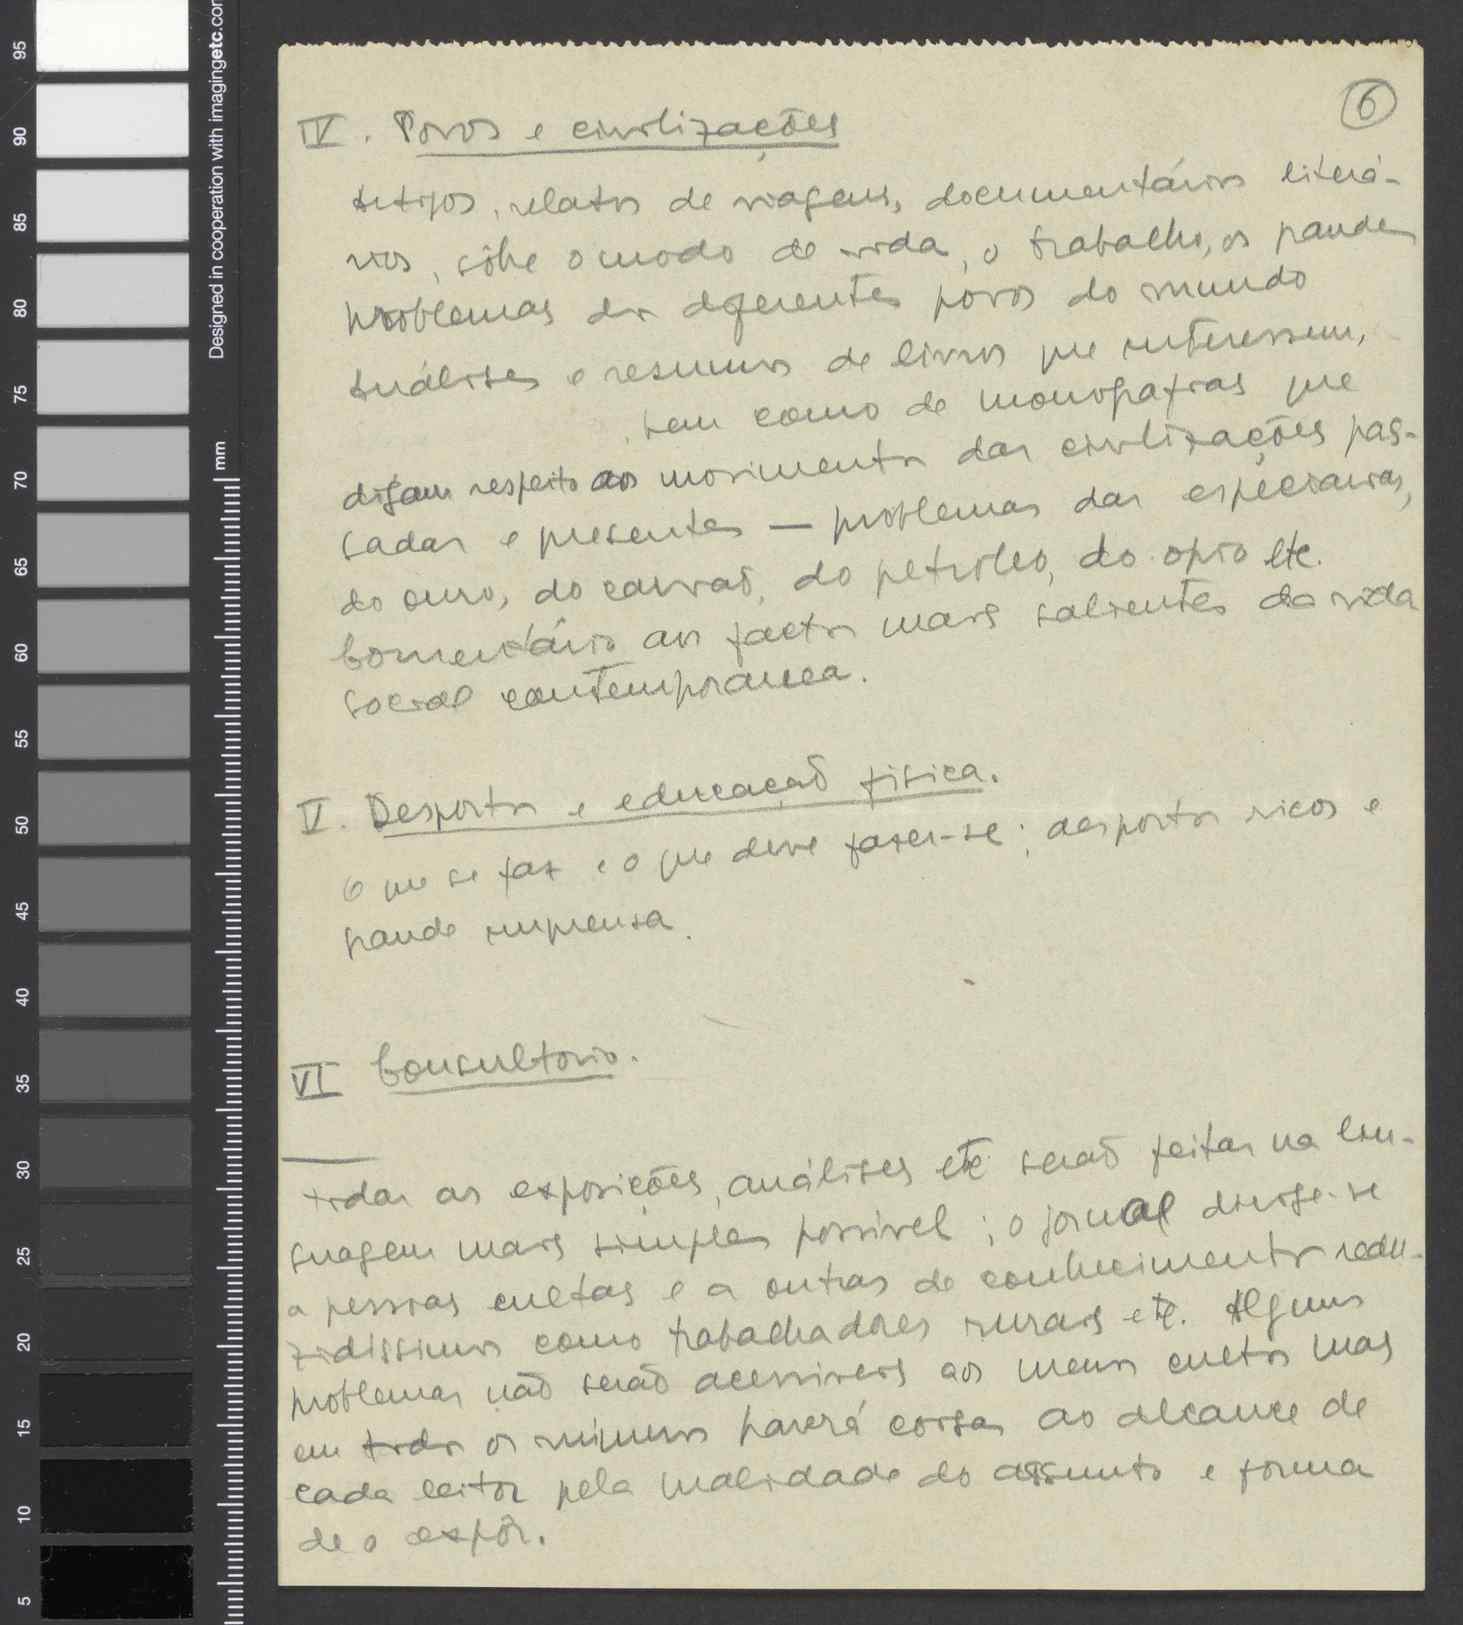 6
IV. Povos e civilizações
Artigos, relatos de viagens, documentários literá-
rios, sôbre o modo de vida, o trabalho, os grandes
problemas dos diferentes povos do mundo
Análises e resumos de livros que interessem,
bem como de monografias que
digam respeito aos movimentos das civilizações pas-
sadas e presentes — problemas das especiarias,
do ouro, do carvão, do petróleo, do opio etc.
Comentário aos factos mais salientes da vida
social contemporanea.
V. Desportos e educação fisica.
O que se faz e o que deve fazer-se; desportos ricos e
grande imprensa.
VI Consultorio.
Todas as exposições, análises etc serão feitas na lin-
guagem mais simples possivel; o jornal dirige-se
a pessoas cultas e a outras de conhecimentos redu-
zidissimos como trabalhadores rurais etc. Alguns
problemas não serão acessiveis aos menos cultos mas
em todos os números haverá coisas ao alcance de
cada leitor pela qualidade do assunto e forma
de o expôr.
Designed in cooperation with imagingetc.com
mm
95
90
85
80
75
70
65
60
55
50
45
40
35
30
25
20
15
10
5